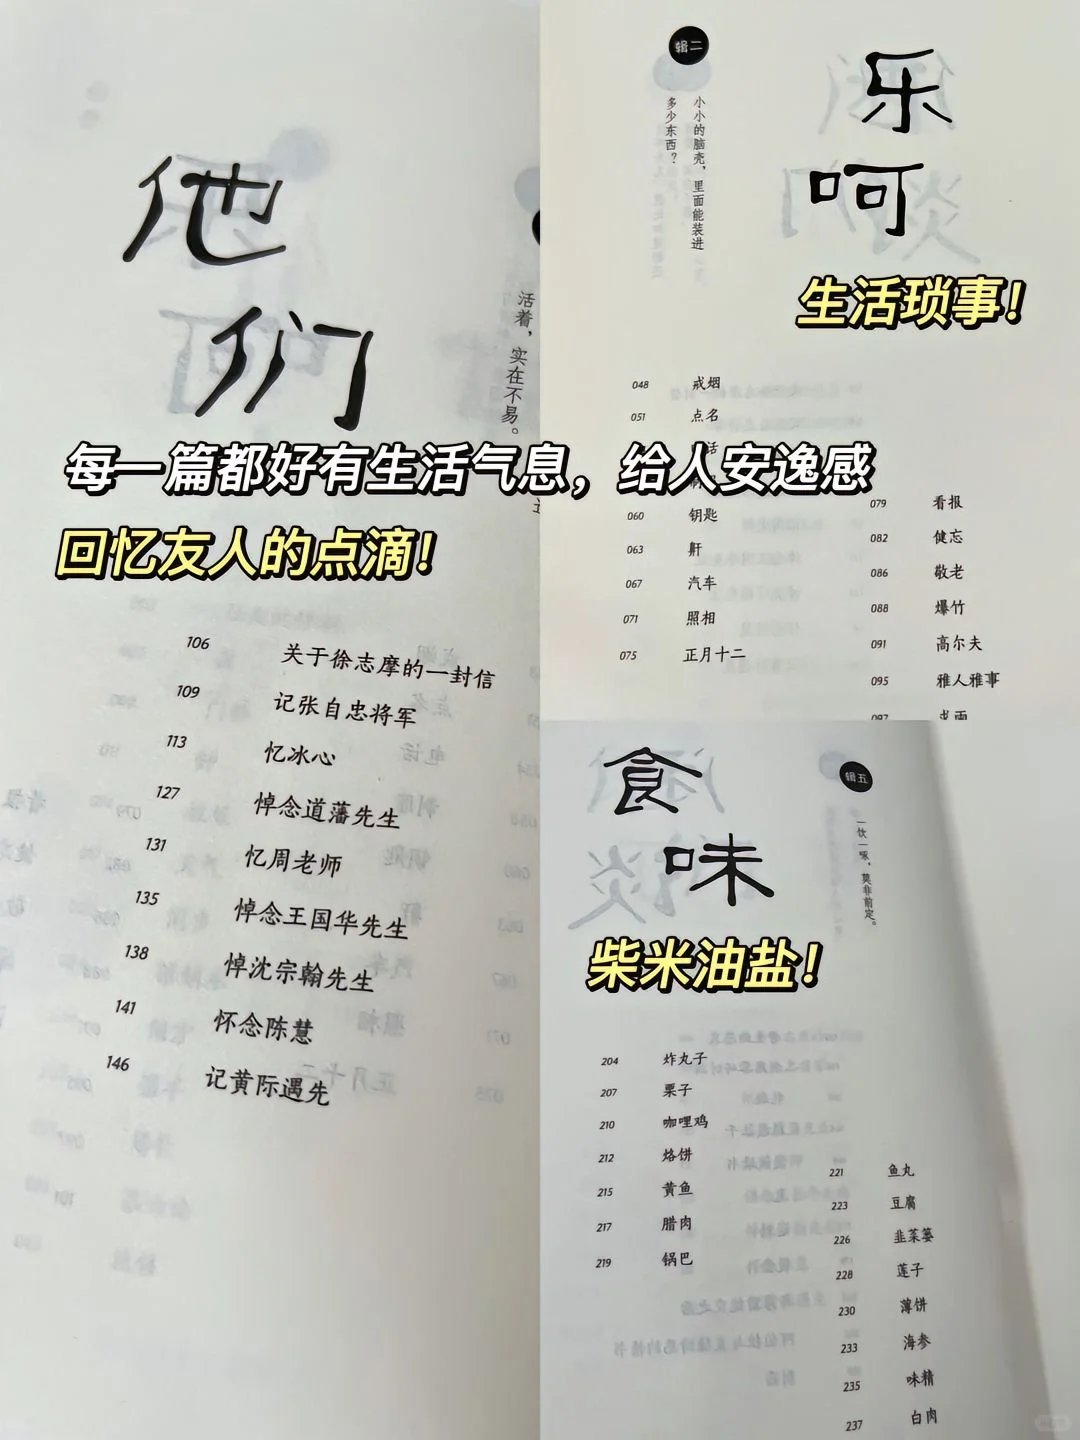 他
们
活着，实在不易。
每一篇都好有生活气息，给人安逸感
回忆友人的点滴！
106 关于徐志摩的一封信
109 记张自忠将军
113 忆冰心
127 悼念道藩先生
131 忆周老师
135 悼念王国华先生
138 悼沈宗翰先生
141 怀念陈慧
146 记黄际遇先
辑二
小小的脑壳，里面能装进
多少东西？
乐
呵
生活琐事！
048 戒烟
051 点名
话
060 钥匙
063 鼾
067 汽车
071 照相
075 正月十二
079 看报
082 健忘
086 敬老
088 爆竹
091 高尔夫
095 雅人雅事
097 求雨
食
味
辑五
一饮一啄，莫非前定。
柴米油盐！
204 炸丸子
207 栗子
210 咖哩鸡
212 烙饼
215 黄鱼
217 腊肉
219 锅巴
221 鱼丸
223 豆腐
226 韭菜篓
228 莲子
230 薄饼
233 海参
235 味精
237 白肉